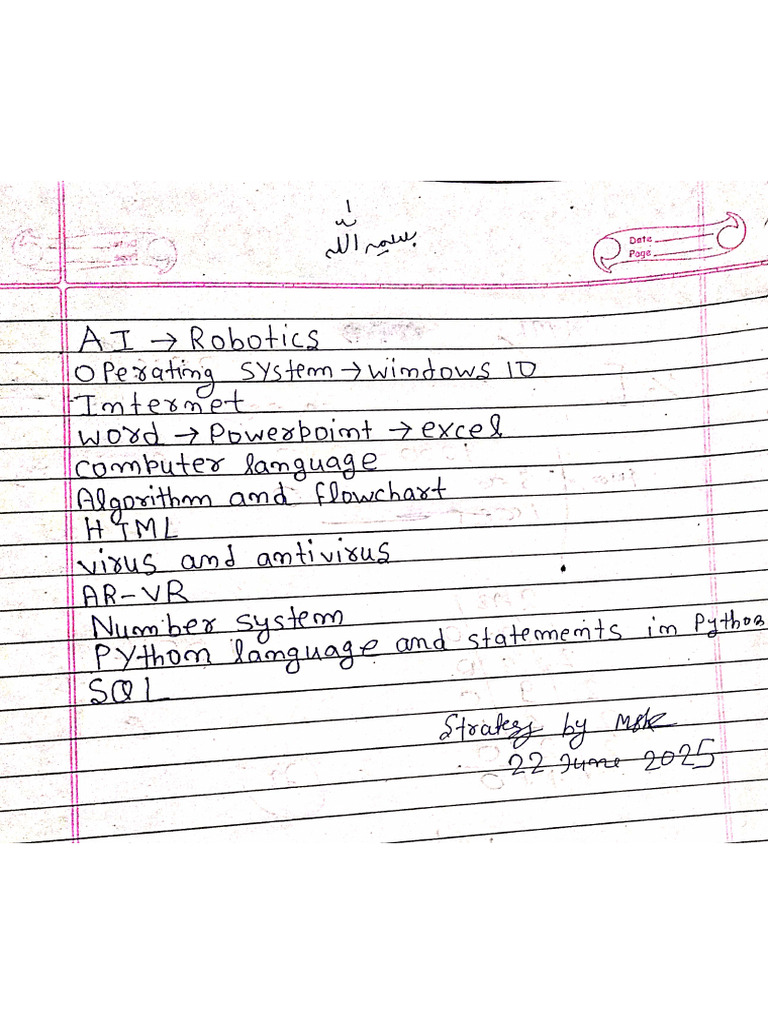 بسم اللہ
Date
Page
AI → Robotics
Operating system → Windows 10
Internet
Word → Powerpoint → excel
Computer language
Algorithm and flowchart
HTML
Virus and antivirus
AR-VR
Number system
Python language and statements in Python
SQL
Strategy by MSK
22 June 2025